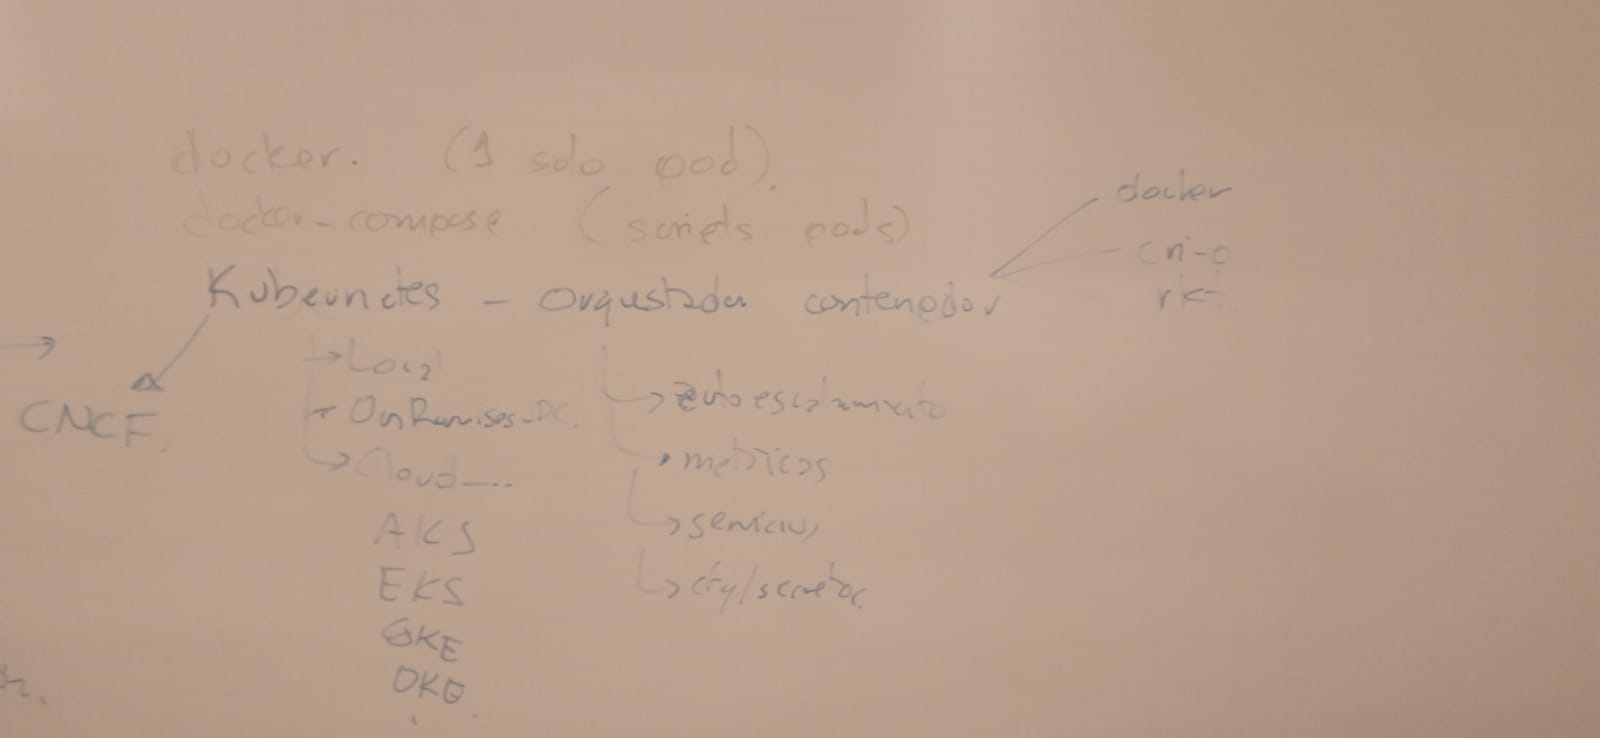 docker. (1 solo pod).
docker-compose (scripts pods)
Kubernetes - Orquestador contenedor
docker
cri-o
rkt
CNCF
Local
OnPremises-DC.
Cloud....
AKS
EKS
GKE
OKE
autoescalamiento
metricas
servicios
cfg/secretos.